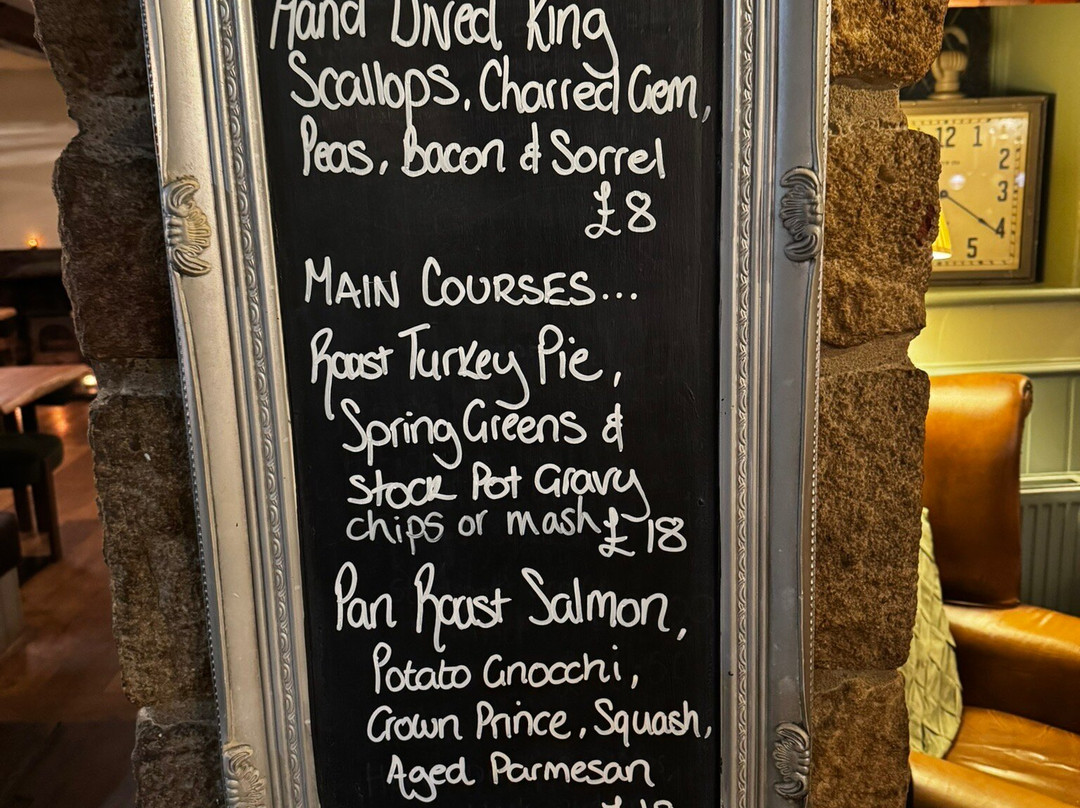 Hand Dived King
Scallops, Charred Gem,
Peas, Bacon & Sorrel
£8
MAIN COURSES...
Roast Turkey Pie,
Spring Greens &
Stock Pot Gravy
chips or mash £18
Pan Roast Salmon,
Potato Gnocchi,
Crown Prince, Squash,
Aged Parmesan
12 1
2
3
4
5